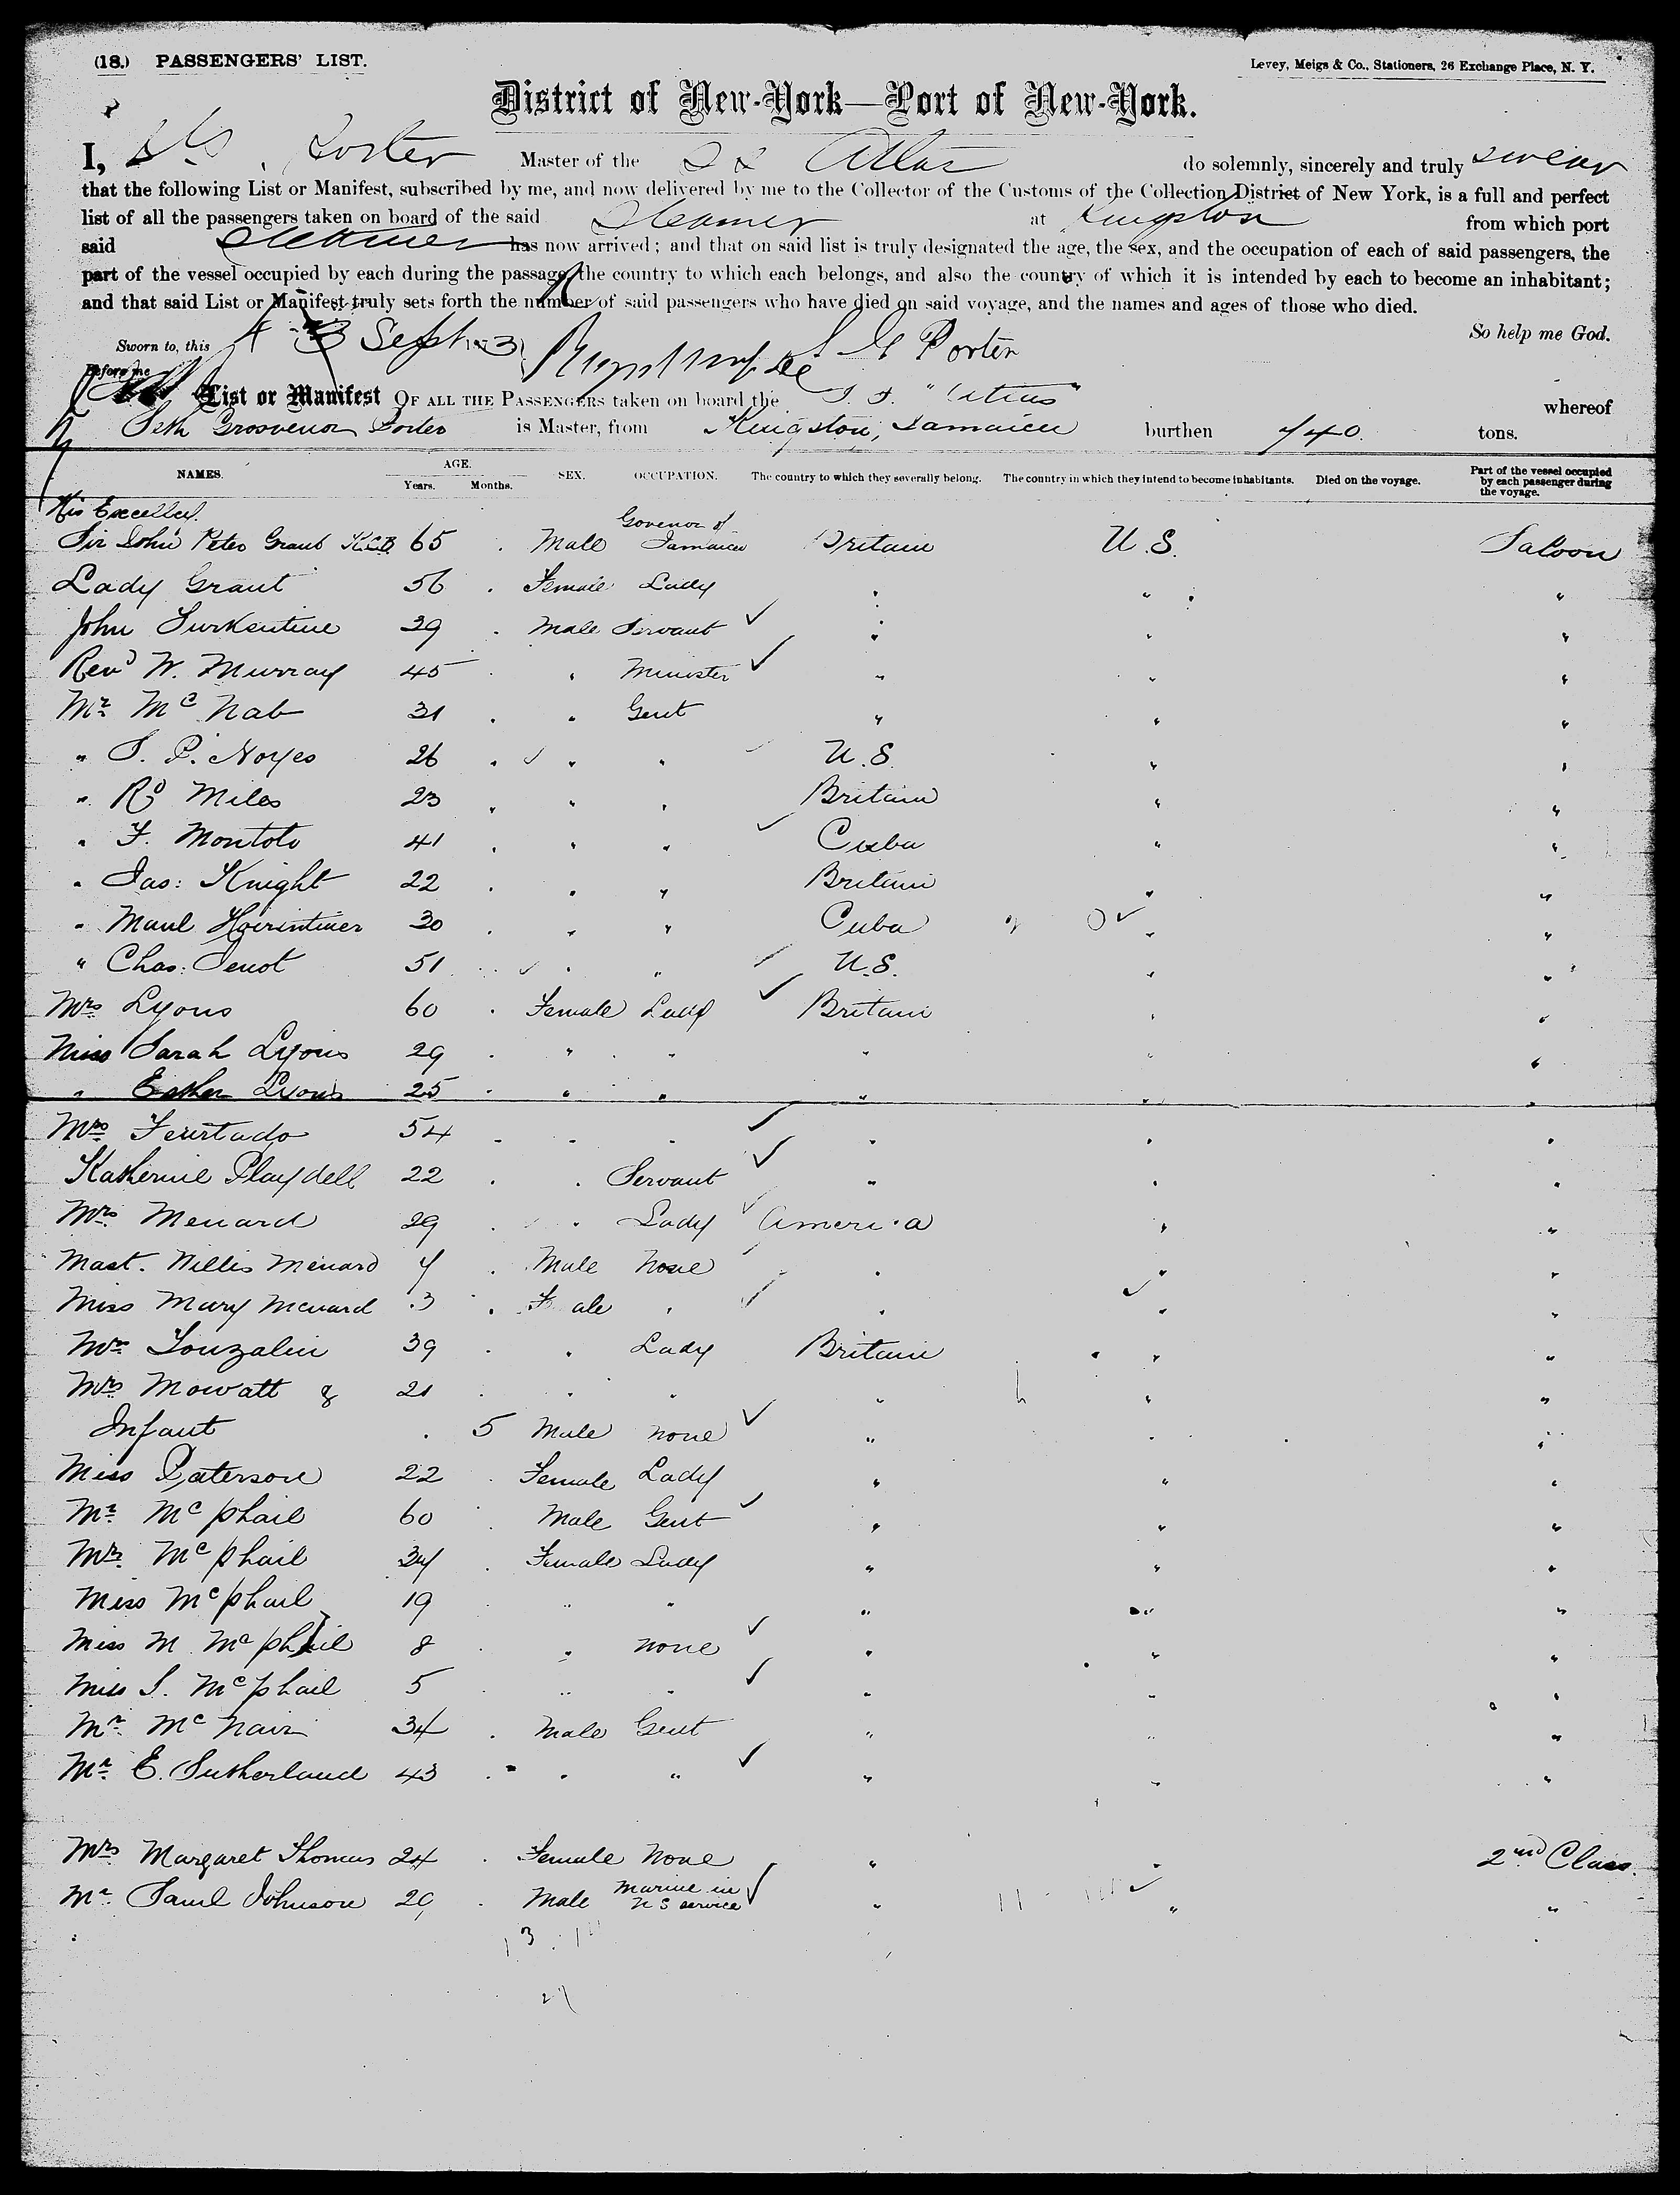 (18.) PASSENGERS' LIST.
Levey, Meigs & Co., Stationers, 26 Exchange Place, N. Y.
District of New-York—Port of New-York.
I, S. G. Porter Master of the SS Atlas do solemnly, sincerely and truly swear
that the following List or Manifest, subscribed by me, and now delivered by me to the Collector of the Customs of the Collection District of New York, is a full and perfect
list of all the passengers taken on board of the said Steamer at Kingston from which port
said Steamer has now arrived; and that on said list is truly designated the age, the sex, and the occupation of each of said passengers, the
part of the vessel occupied by each during the passage, the country to which each belongs, and also the country of which it is intended by each to become an inhabitant;
and that said List or Manifest truly sets forth the number of said passengers who have died on said voyage, and the names and ages of those who died.
So help me God.
Sworn to, this 4 Sept 1873 S G Porter
Before me
List or Manifest OF ALL THE PASSENGERS taken on board the S. S. "Atlas" whereof
Seth Grosvenor Porter is Master, from Kingston, Jamaica burthen 740 tons.
NAMES. AGE. Years. Months. SEX. OCCUPATION. The country to which they severally belong. The country in which they intend to become inhabitants. Died on the voyage. Part of the vessel occupied by each passenger during the voyage.
His Excellcy.
Sir John Peter Grant K.C.B. 65 Male Govenor of Jamaica Britain U.S. Saloon
Lady Grant 56 . Female Lady " " "
John 39 . Male Servant ✓ " " "
Revd W. Murray 45 . " Minister ✓ " " "
Mr. Mc Nab 31 . " Gent " " "
" S. P. Noyes 26 . ✓ " " U.S. " "
" Rd Miles 23 . " " Britain " "
" F. Montoto 41 . " " ✓ Cuba " "
" Jas: Knight 22 . " " Britain " "
" Manl 30 . " " Cuba " "
" Chas: 51 . ✓ " " U.S. " "
Mrs. Lyons 60 . Female Lady ✓ Britain " "
Miss Sarah Lyons 29 . " " " " "
" Esther Lyons 25 . " " " " "
Mrs Feurtado 54 . " " ✓ " " "
Katherine Playdell 22 . " Servant ✓ " " "
Mrs. Menard 29 . " Lady ✓ America " "
Mast. Willis Menard 4 . Male None " " "
Miss Mary Menard 3 . F ale " " " "
Mrs. Touzalin 39 . " Lady Britain " "
Mrs. Mowatt & 21 . " " " " "
Infant . 5 Male none ✓ " " "
Miss Paterson 22 . Female Lady " " "
Mr. Mc phail 60 . Male Gent ✓ " " "
Mrs. Mc phail 34 . Female Lady " " "
Miss Mc phail 19 " " " " "
Miss M Mc phail 8 . " none ✓ " " "
Miss I. Mc phail 5 . " " ✓ " " "
Mr. Mc Nair 34 . Male Gent " " "
Mr. E. Sutherland 43 . " " ✓ " " "
Mrs Margaret Thomas 24 . Female None " " 2nd Class.
Mr. Saml Johnson 29 . Male Marine in U S service ✓ " " "